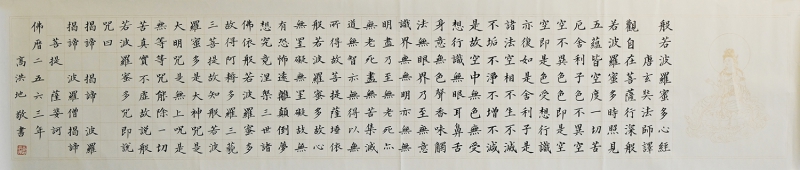 般若波羅蜜多心經
唐玄奘法師譯
觀自在菩薩行深般
若波羅蜜多時照見
五蘊皆空度一切苦
厄舍利子色不異空
空不異色色即是空
空即是色受想行識
亦復如是舍利子是
諸法空相不生不滅
不垢不淨不增不減
是故空中無色無受
想行識無眼耳鼻舌
身意無色聲香味觸
法無眼界乃至無意
識界無無明亦無無
明盡乃至無老死亦
無老死盡無苦集滅
道無智亦無得以無
所得故菩提薩埵依
般若波羅蜜多故心
無罣礙無罣礙故無
有恐怖遠離顛倒夢
想究竟涅槃三世諸
佛依般若波羅蜜多
故得阿耨多羅三藐
三菩提故知般若波
羅蜜多是大神咒是
大明咒是無上咒是
無等等咒能除一切
苦真實不虛故說般
若波羅蜜多咒即說
咒曰
揭諦 揭諦 波羅
揭諦 波羅僧揭諦
菩提 薩婆訶
佛曆二五六三年
高洪地 敬書